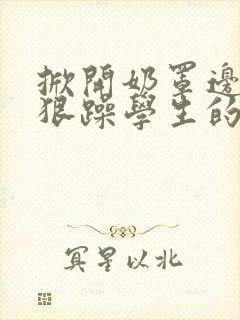 掀開奶罩邊
狠躁學生的
冥星以北